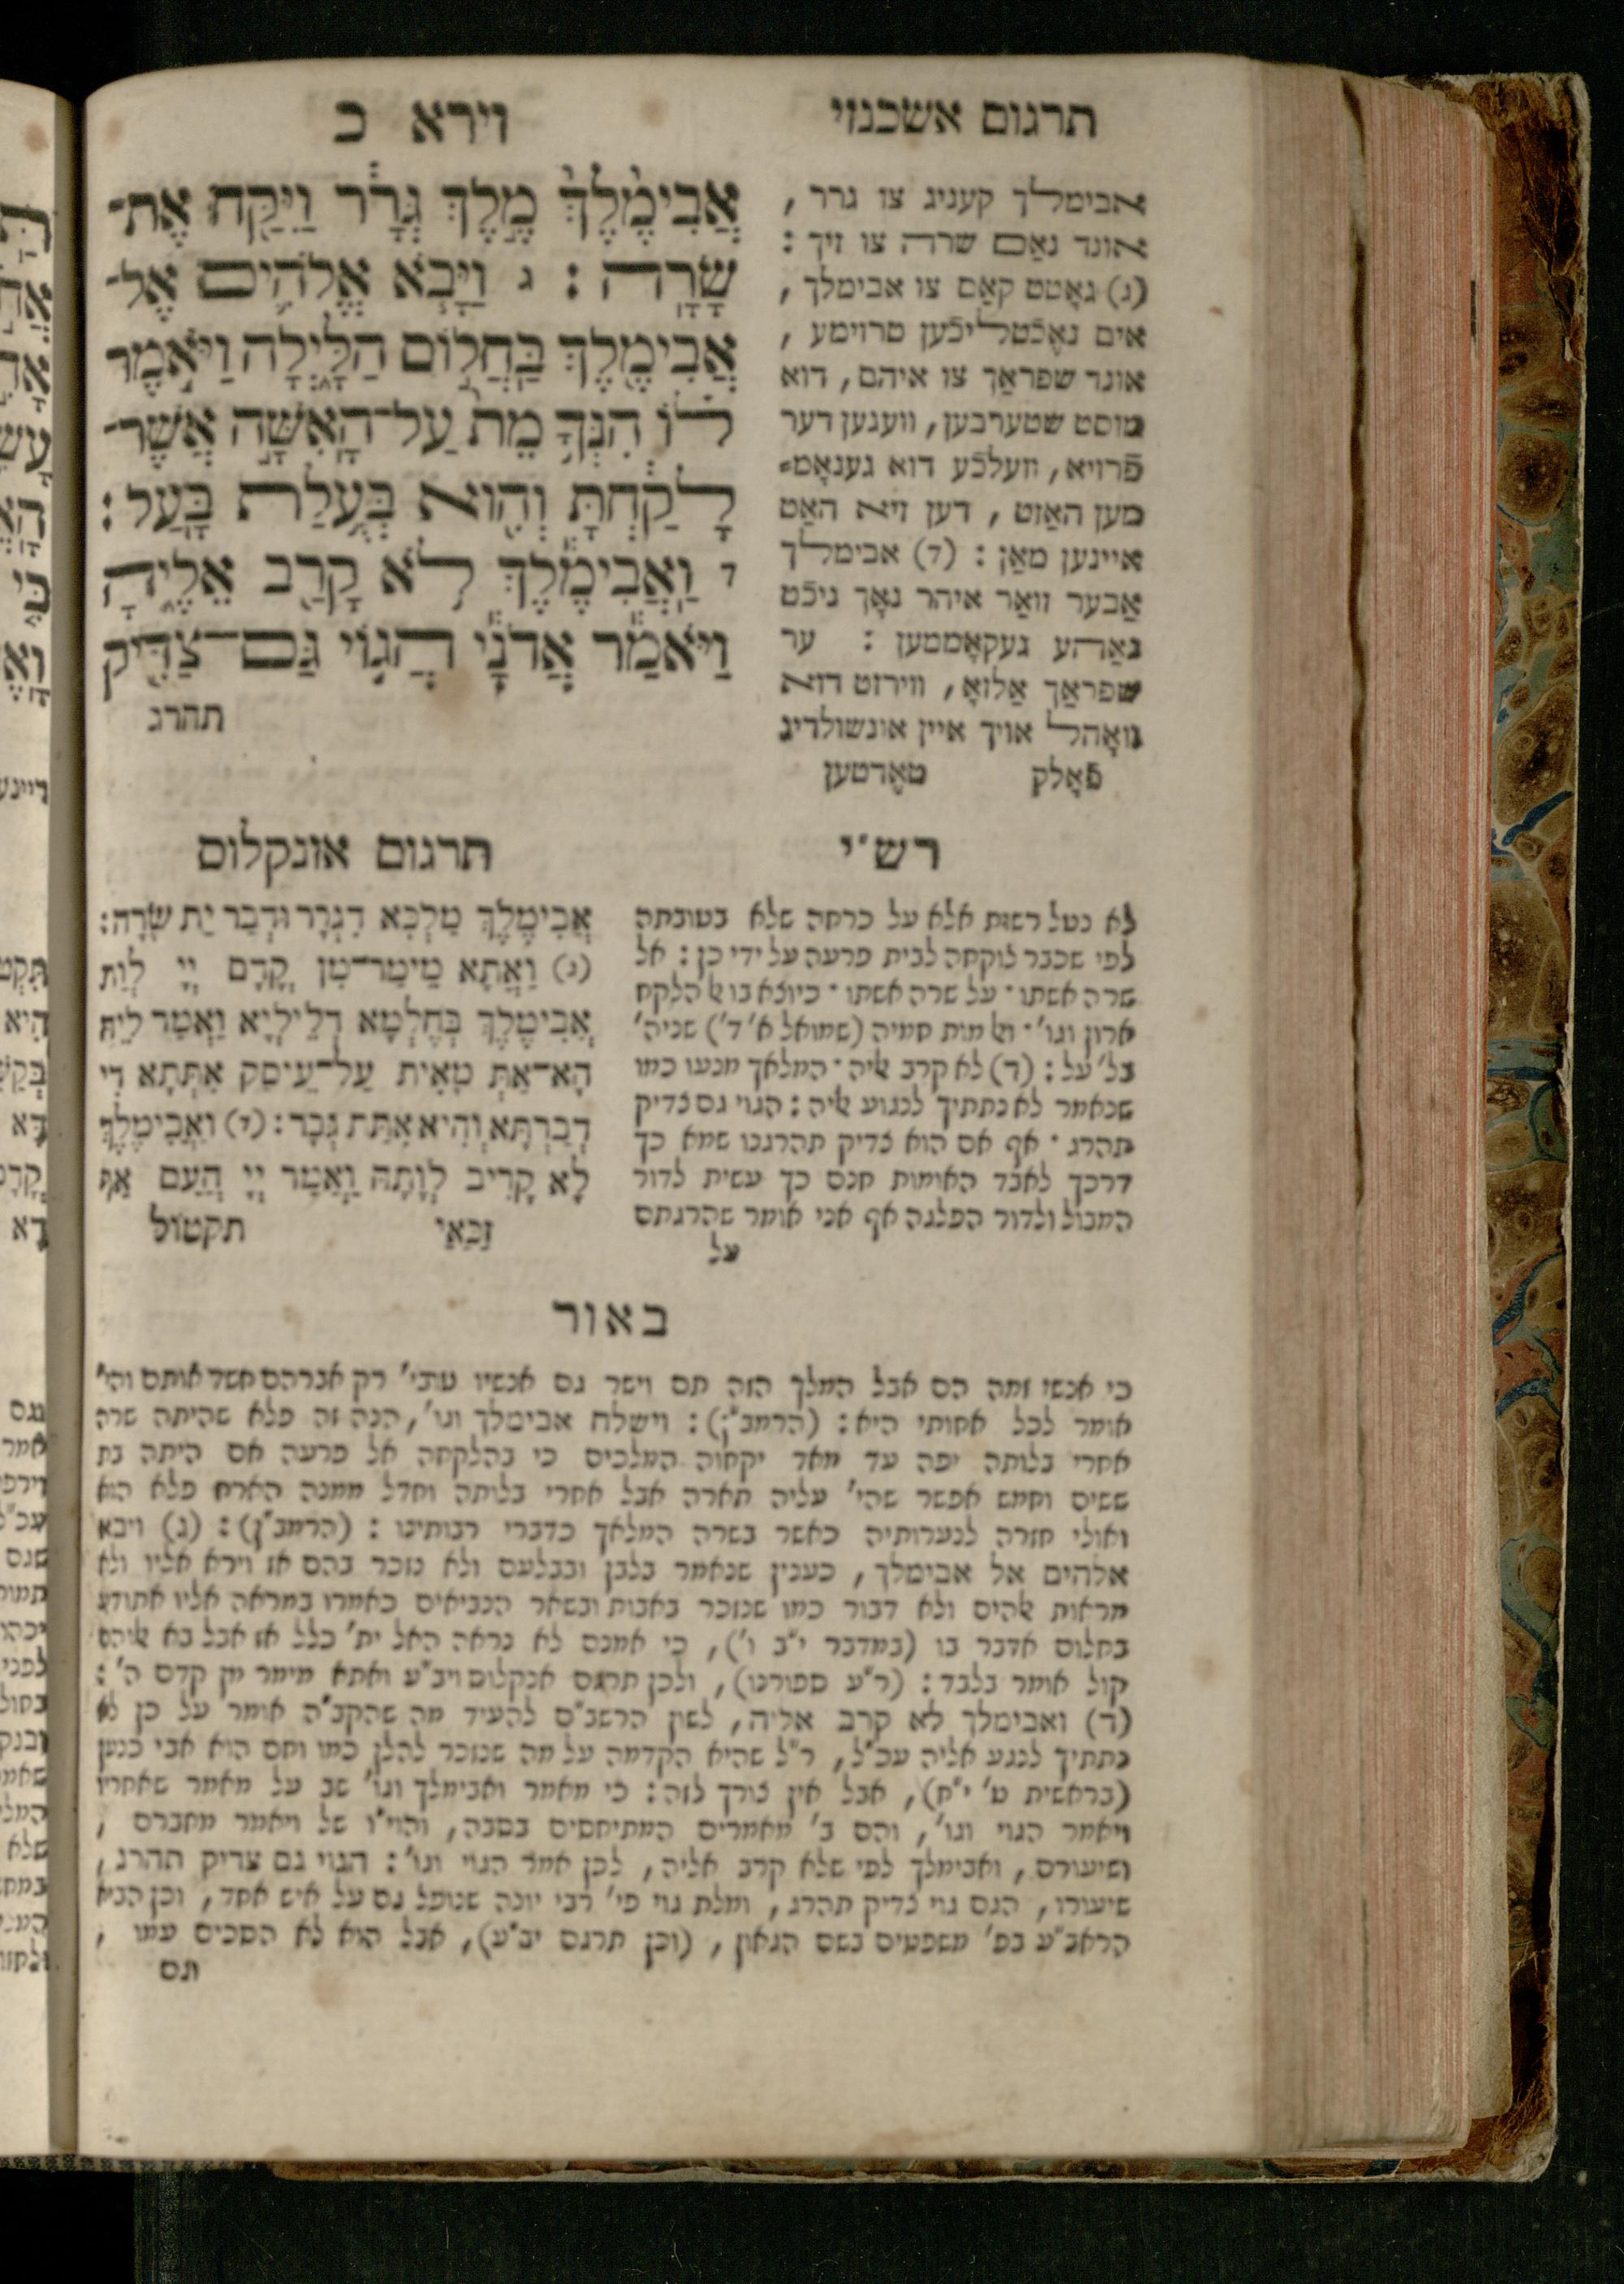 תרגום אשכנזי
וירא כ
אבימלך קעניג צו גרר,
אונד נאַם שרה צו זיך:
(ג) גאָטט קאַם צו אבימלך,
אים נאֶכֿטליכֿען טרוימע,
אונד שפראַך צו איהם, דוא
מוסט שטערבען, וועגען דער
פֿרויא, וועלכֿע דוא גענאָמ=
מען האַזט, דען זיא האַט
איינען מאַן: (ד) אבימלך
אַבער וואַר איהר נאָך ניכֿט
נאַהע געקאָממען: ער
שפראַך אַלזאָ, ווירזט דוא
וואָהל אויך איין אונשולדיג
פֿאָלק טאֶדטען
אֲבִימֶ֙לֶךְ֙ מֶ֣לֶךְ גְּרָ֔ר וַיִּקַּ֖ח אֶת־
שָׂרָֽה: ג וַיָּבֹ֧א אֱלֹהִ֛ים אֶל־
אֲבִימֶ֖לֶךְ בַּחֲל֣וֹם הַלָּ֑יְלָה וַיֹּ֣אמֶר
ל֗וֹ הִנְּךָ֥ מֵת֙ עַל־הָאִשָּׁ֣ה אֲשֶׁר־
לָקַ֔חְתָּ וְהִ֖וא בְּעֻ֥לַת בָּֽעַל:
ד וַאֲבִימֶ֕לֶךְ לֹ֥א קָרַ֖ב אֵלֶ֑יהָ
וַיֹּאמַ֕ר אֲדֹנָ֕י הֲג֥וֹי גַּם־צַדִּ֖יק
תהרג
רש"י
לא נטל רשות אלא על כרחה שלא בטובתה
לפי שכבר לוקחה לבית פרעה על ידי כן: אל
שרה אשתו · על שרה אשתו · כיוצא בו אל הלקח
ארון וגו' · ואל מות חמיה (שמואל א' ד') שניה'
בל' על: (ד) לא קרב אליה · המלאך מנעו כמו
שנאמר לא נתתיך לנגוע אליה: הגוי גם צדיק
תהרג · אף אם הוא צדיק תהרגנו שמא כך
דרכך לאבד האומות חנם כך עשית לדור
המבול ולדור הפלגה אף אני אומר שהרגתם
על
תרגום אונקלוס
אֲבִימֶלֶךְ מַלְכָּא דִגְרָר וּדְבַר יַת שָׂרָה:
(ג) וַאֲתָא מֵימַר־מִן קֳדָם יְיָ לְוַת
אֲבִימֶלֶךְ בְּחֶלְמָא דְלֵילְיָא וַאֲמַר לֵיהּ
הָא־אַתְּ מָאִית עַל־עֵיסַק אִתְּתָא דִי
דְבַרְתָּא וְהִיא אִתַּת גְּבָר: (ד) וַאֲבִימֶלֶךְ
לָא קָרִיב לְוָתָהּ וַאֲמַר יְיָ הֲעַם אַף
זַכַּאי תקטול
באור
כי אנשי זמה הם אבל המלך הזה תם וישר גם אנשיו טובי' רק אברהם חשד אותם והי'
אומר לכל אחותי היא: (הרמב"ן): וישלח אבימלך וגו', הנה זה פלא שהיתה שרה
אחרי בלותה יפה עד מאד יקחוה המלכים כי בהלקחה אל פרעה אם היתה בת
ששים וחמש אפשר שהי' עליה תארה אבל אחרי בלותה וחדל ממנה הארח פלא הוא
ואולי חזרה לנערותיה כאשר בשרה המלאך כדברי רבותינו: (הרמב"ן): (ג) ויבא
אלהים אל אבימלך, כענין שנאמר בלבן ובבלעם ולא נזכר בהם אז וירא אליו ולא
מראות אלהים ולא דבור כמו שנזכר באבות ובשאר הנביאים כאמרו במראה אליו אתודע
בחלום אדבר בו (במדבר י"ב ו'), כי אמנם לא נראה האל ית' כלל אז אבל בא אליהם
קול אומר בלבד: (ר"ע ספורנו), ולכן תרגם אנקלוס ויב"ע ואתא מימר מן קדם ה':
(ד) ואבימלך לא קרב אליה, לשון הרשב"ם להעיד מה שהקב"ה אומר על כן לא
נתתיך לנגע אליה עכ"ל, ר"ל שהיא הקדמה על מה שנזכר להלן כמו וחם הוא אבי כנען
(בראשית ט' י"ח), אבל אין צורך לזה: כי מאמר ואבימלך וגו' שב על מאמר שאחריו
ויאמר הגוי וגו', והם ב' מאמרים המתיחסים בסבה, והוי"ו של ויאמר מחברם,
ושיעורם, ואבימלך לפי שלא קרב אליה, לכן אמר הגוי וגו': הגוי גם צדיק תהרג,
שיעורו, הגם גוי צדיק תהרג, ומלת גוי פי' רבי יונה שנופל גם על איש אחד, וכן הביא
הראב"ע בפ' משפטים בשם הגאון, (וכן תרגם יב"ע), אבל הוא לא הסכים עמו,
תם